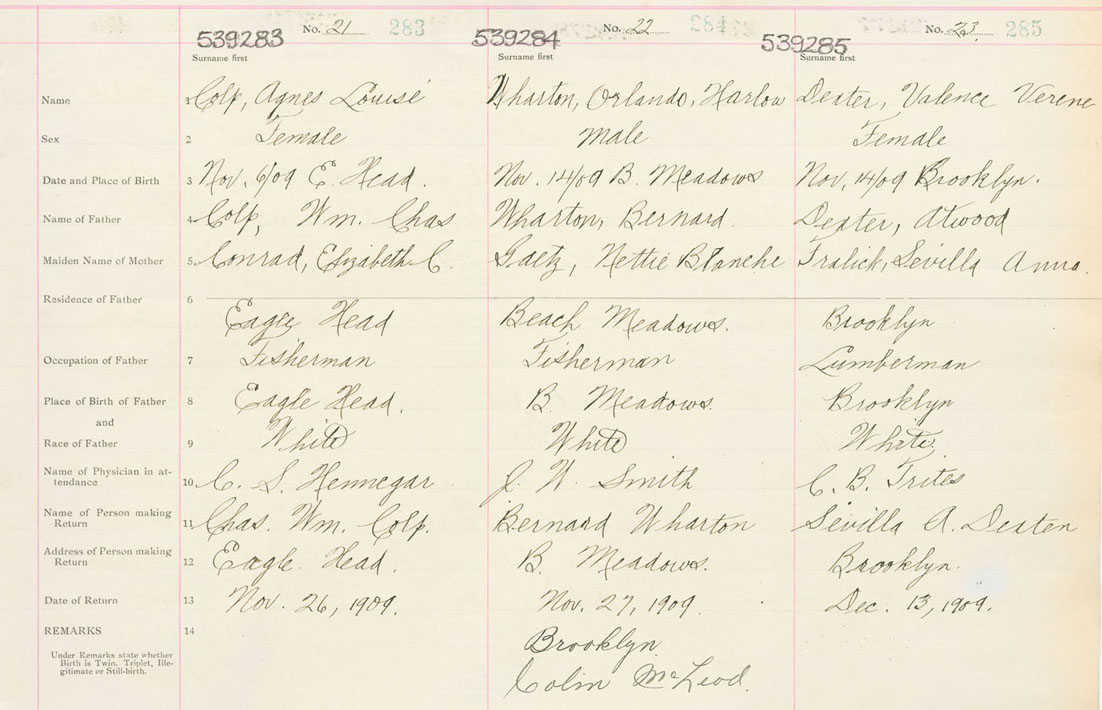 No. 21 283 No. 22 284 No. 23. 285
539283 539284 539285
Surname first Surname first Surname first
Name 1 Colp, Agnes Louise Wharton, Orlando, Harlow Dexter, Valence Verene
Sex 2 Female Male Female
Date and Place of Birth 3 Nov. 6/09 E. Head. Nov. 14/09 B. Meadows Nov, 14/09 Brooklyn.
Name of Father 4 Colp, Wm. Chas Wharton, Bernard. Dexter, Atwood
Maiden Name of Mother 5 Conrad, Elizabeth C. Gaetz, Nettie Blanche Fralick, Sevilla Anna.
Residence of Father 6
Eagle Head Beach Meadows. Brooklyn
Occupation of Father 7 Fisherman Fisherman Lumberman
Place of Birth of Father 8 Eagle Head. B. Meadows. Brooklyn
and
Race of Father 9 White White White
Name of Physician in at-
tendance 10 C. S. Hennegar J. W. Smith C. B. Trites
Name of Person making
Return 11 Chas. Wm. Colp. Bernard Wharton Sevilla A. Dexter
Address of Person making
Return 12 Eagle Head. B. Meadows. Brooklyn.
Date of Return 13 Nov. 26, 1909. Nov. 27, 1909. Dec. 13, 1909.
REMARKS 14
Under Remarks state whether
Birth is Twin, Triplet, Ille-
gitimate or Still-birth.
Brooklyn
Colin McLeod.